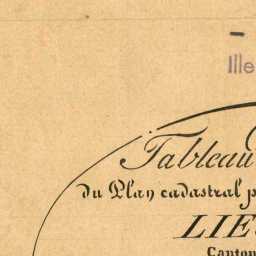 Ille
Tableau
du Plan cadastral p
LIE
Canton